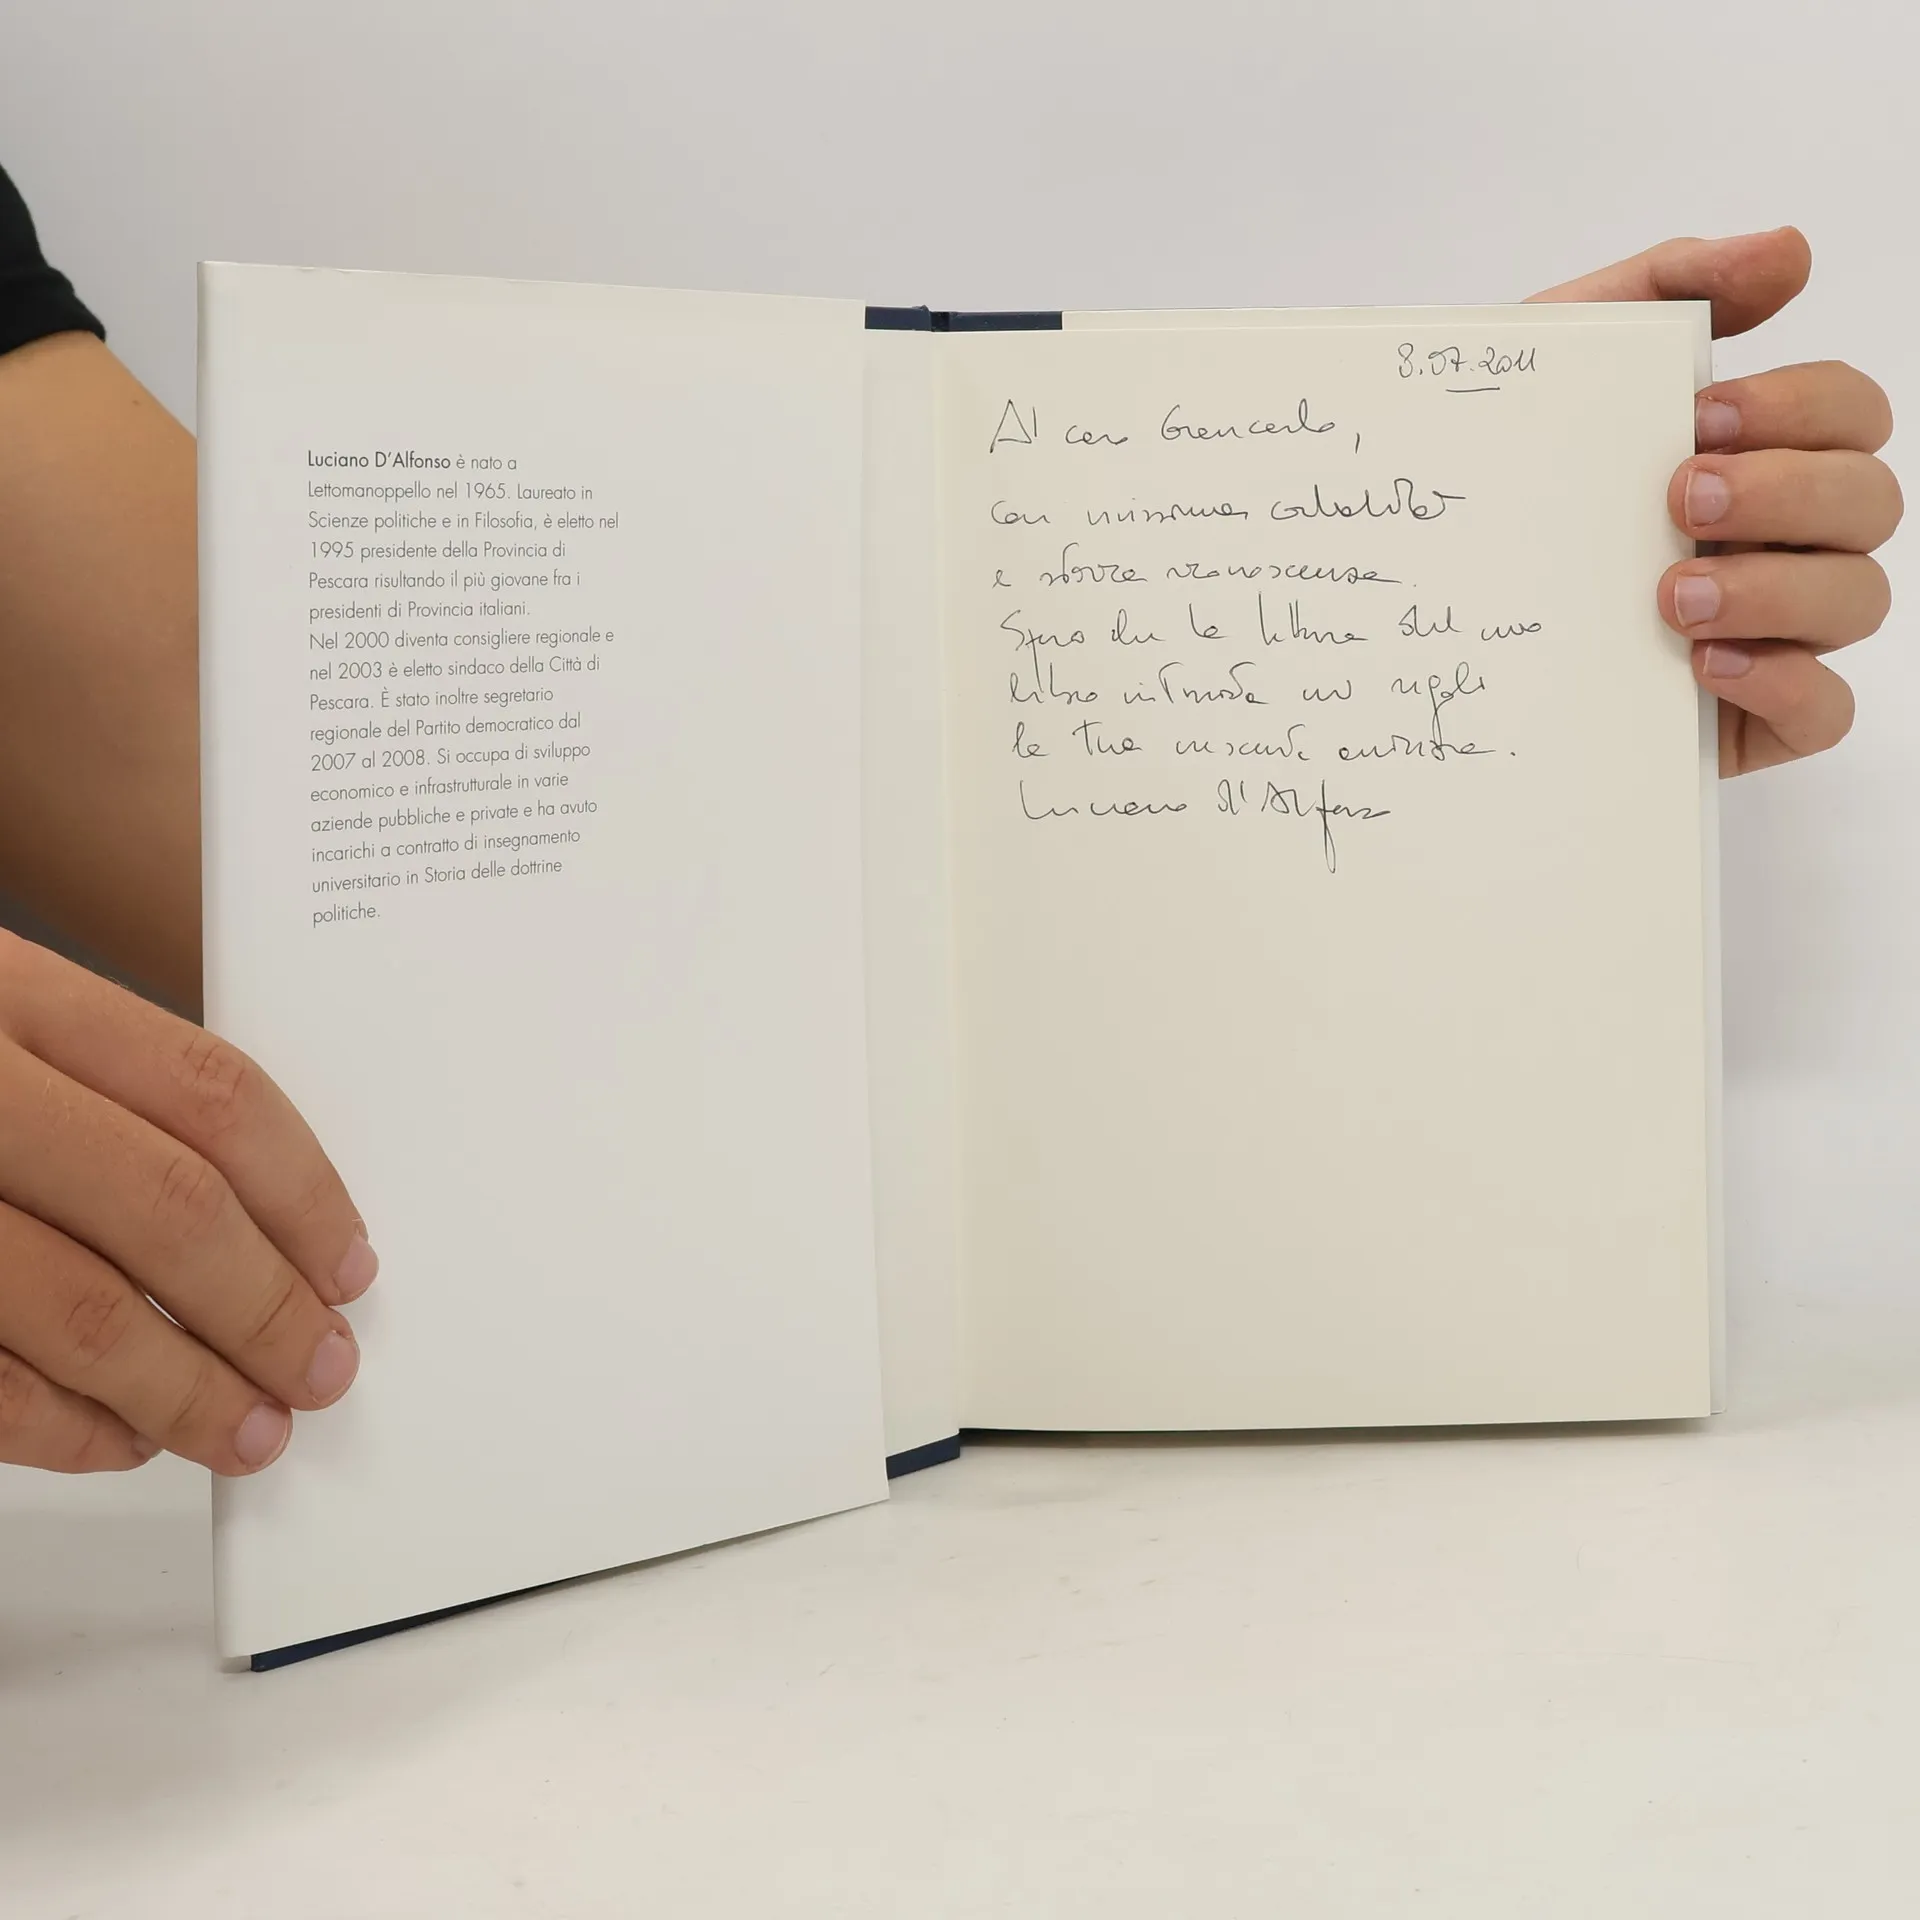 Luciano D'Alfonso è nato a
Lettomanoppello nel 1965. Laureato in
Scienze politiche e in Filosofia, è eletto nel
1995 presidente della Provincia di
Pescara risultando il più giovane fra i
presidenti di Provincia italiani.
Nel 2000 diventa consigliere regionale e
nel 2003 è eletto sindaco della Città di
Pescara. È stato inoltre segretario
regionale del Partito democratico dal
2007 al 2008. Si occupa di sviluppo
economico e infrastrutturale in varie
aziende pubbliche e private e ha avuto
incarichi a contratto di insegnamento
universitario in Storia delle dottrine
politiche.
8.07.2011
Al caro Giancarlo,
con vivissima cordialità
e riconoscenza.
Spero che la lettura del mio
libro
la tua
Luciano D'Alfonso